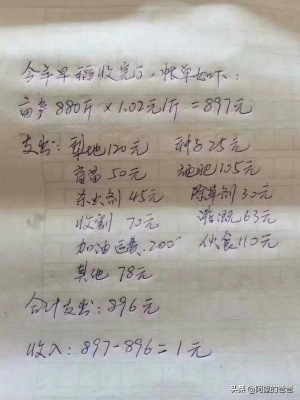 今年早稻收完了,帐单如下:
亩产880斤×1.02元/斤=897元
支出:犁地120元 种子25元
育苗50元 施肥105元
杀虫剂45元 除草剂30元
收割70元 灌溉63元
加油运费200 伙食110元
其他78元
合计支出:896元
收入:897-896=1元
头条@阿望的爸爸